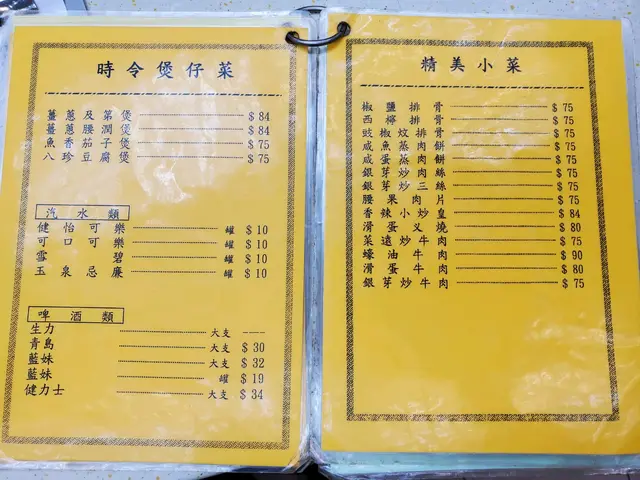 時令煲仔菜
薑蔥及第煲 $84
薑蔥腰潤煲 $84
魚香茄子煲 $75
八珍豆腐煲 $75
汽水類
健怡可樂 罐 $10
可口可樂 罐 $10
雪碧 罐 $10
玉泉忌廉 罐 $10
啤酒類
生力 大支 ----
青島 大支 $30
藍妹 大支 $32
藍妹 罐 $19
健力士 大支 $34
精美小菜
椒鹽排骨 $75
西檸排骨 $75
豉椒炆排骨 $75
咸魚蒸肉餅 $75
咸蛋蒸肉餅 $75
銀芽炒肉絲 $75
銀芽炒三絲 $75
腰果肉片 $75
香辣小炒皇 $84
滑蛋叉燒 $80
菜遠炒牛肉 $75
蠔油牛肉 $90
滑蛋牛肉 $80
銀芽炒牛肉 $75